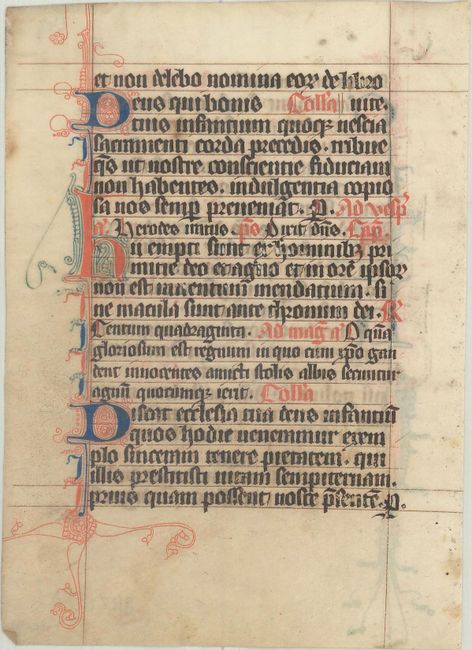 et non delebo nomina eoꝝ de libro
Deus qui bonis Coll̄a uite.
tuis infantium quoqꝫ nescia
sacramenti corda precedis. tribue
q̄s ut nostre conscientie fiduciam
non habentes. indulgentia copio
sa nos semꝑ preueniat. P. Ad vesp̄
a᷎. Herodes iratus ps̄ Dixit dn̄s. Cap̄.
Hii empti sunt ex hominibꝫ pri
micie deo et agno et in ore ipsoꝝ
non est inuentum mendacium. si
ne macula sunt ante thronum dei. R
Centum quadraginta. Ad maḡ a᷎ O quā
gloriosum est regnum in quo cum xp̄o gau
dent innocentes amicti stolis albis secuntur
agnum quocumqꝫ ierit. Coll̄a
Discat ecclesia tua deus infantiū
quos hodie ueneramur exem
plo sinceram tenere pietatem. que
illis prestitisti uitam sempiternam.
prius quam possent nosse p̄sentē. P.